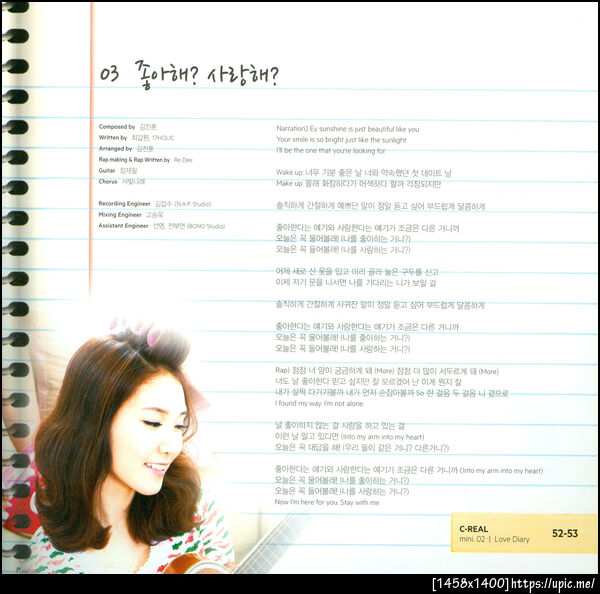 03 좋아해? 사랑해?
Composed by 김진훈
Written by 최갑원, 17HOLIC
Arranged by 김진훈
Rap making & Rap Written by Re Dee
Guitar 정재필
Chorus 서빛나래
Recording Engineer 김갑수 (N.A.P. Studio)
Mixing Engineer 고승욱
Assistant Engineer 선영, 전부연 (BONO Studio)
Narration) Ey sunshine is just beautiful like you
Your smile is so bright just like the sunlight
I'll be the one that you're looking for
Wake up 너무 기분 좋은 날 너와 약속했던 첫 데이트 날
Make up 몰래 화장하다가 어색하다 할까 걱정되지만
솔직하게 간절하게 예쁘단 말이 정말 듣고 싶어 부드럽게 달콤하게
좋아한다는 얘기와 사랑한다는 얘기가 조금은 다른 거니까
오늘은 꼭 물어볼래! (나를 좋아하는 거니?)
오늘은 꼭 들어볼래! (나를 사랑하는 거니?)
어제 새로 산 옷을 입고 미리 골라 놓은 구두를 신고
이제 저기 문을 나서면 나를 기다리는 니가 보일 걸
솔직하게 간절하게 사귀잔 말이 정말 듣고 싶어 부드럽게 달콤하게
좋아한다는 얘기와 사랑한다는 얘기가 조금은 다른 거니까
오늘은 꼭 물어볼래! (나를 좋아하는 거니?)
오늘은 꼭 들어볼래! (나를 사랑하는 거니?)
Rap) 점점 네 맘이 궁금하게 돼 (More) 점점 더 많이 서두르게 돼 (More)
너도 날 좋아한다 믿고 싶지만 잘 모르겠어 난 이게 뭔지 잘
내가 살짝 다가가볼까 내가 먼저 손잡아볼까 So 한 걸음 두 걸음 니 곁으로
I found my way. I'm not alone.
널 좋아하지 않는 걸 사랑을 하고 있는 걸
이런 날 알고 있다면 (Into my arm into my heart)
오늘은 꼭 대답을 해! (우리 둘이 같은 거니? 다른거니?)
좋아한다는 얘기와 사랑한다는 얘기가 조금은 다른 거니까 (Into my arm into my heart)
오늘은 꼭 물어볼래! (나를 좋아하는 거니?)
오늘은 꼭 들어볼래! (나를 사랑하는 거니?)
Now I'm here for you. Stay with me
C-REAL
mini. 02 | Love Diary
52-53
[1458x1400]https://upic.me/